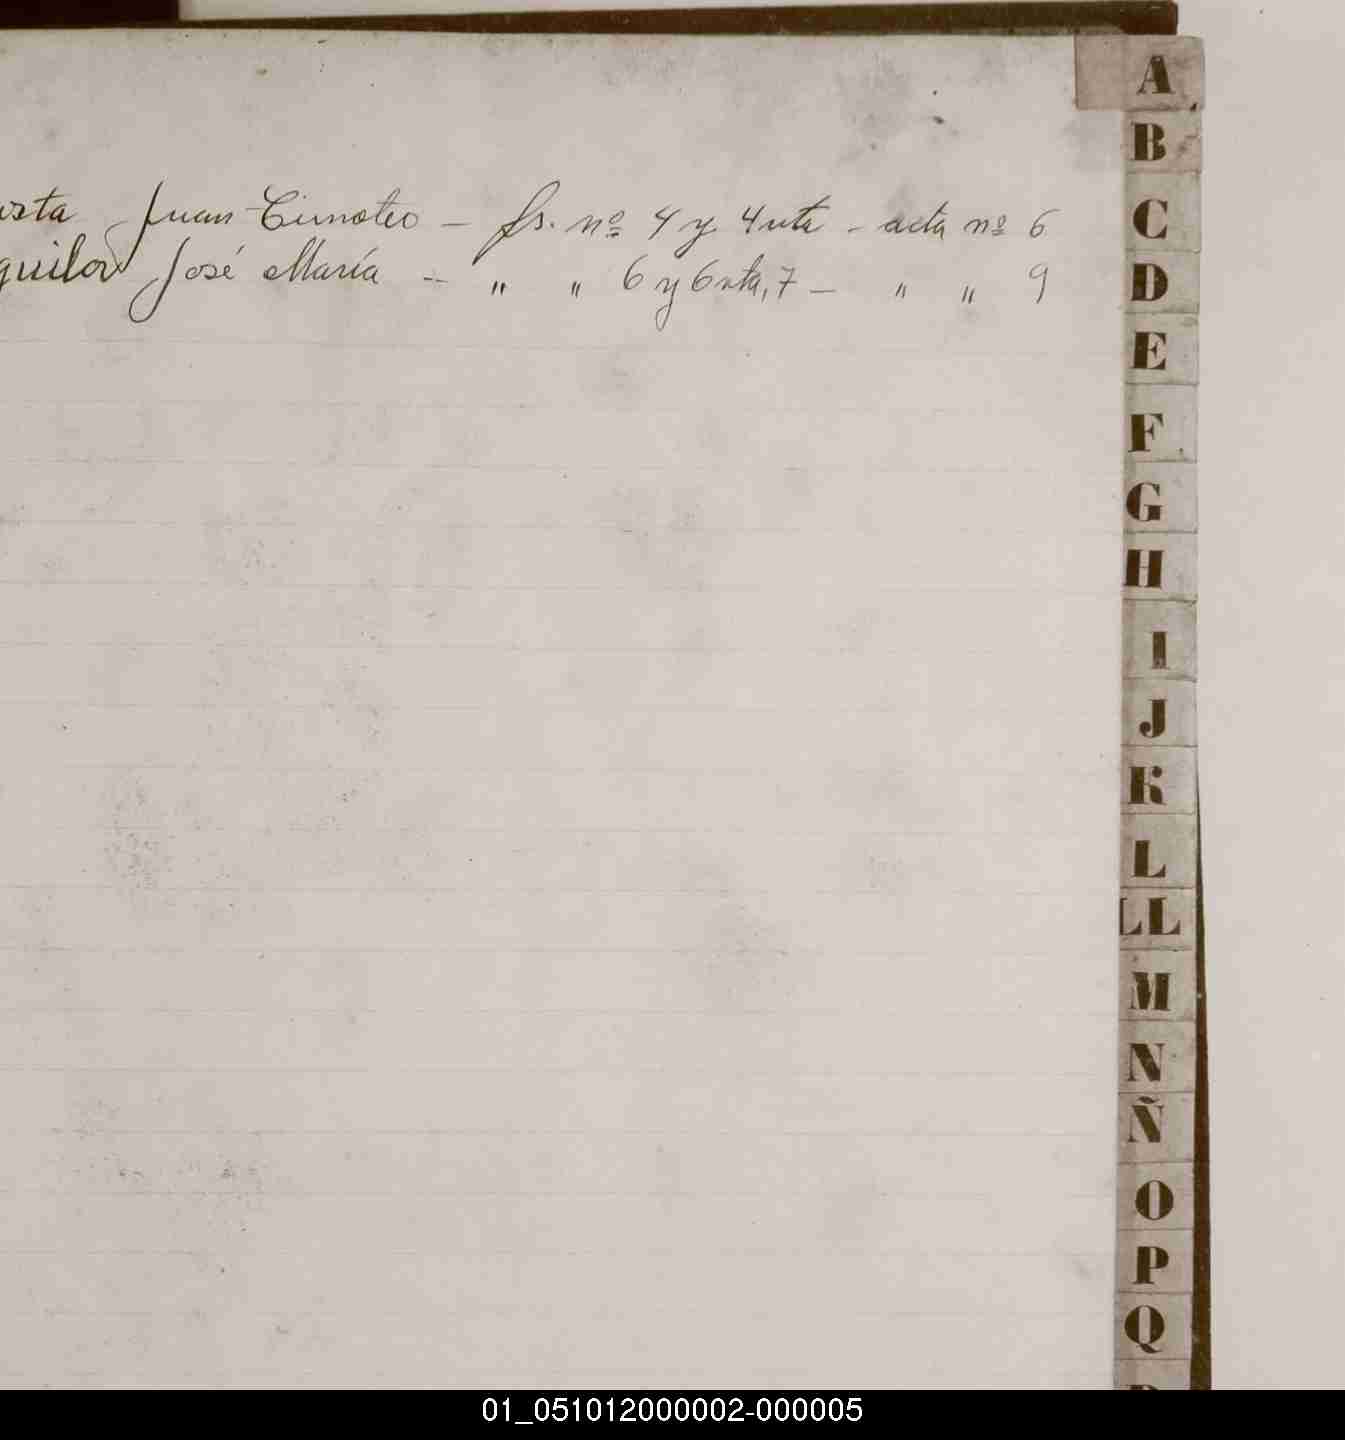 usta Juan Timoteo – fs. nº 4 y 4 vta – acta nº 6
guilar José María – " " 6 y 6 vta, 7 – " " 9
A
B
C
D
E
F
G
H
I
J
K
L
LL
M
N
Ñ
O
P
Q
01_051012000002-000005